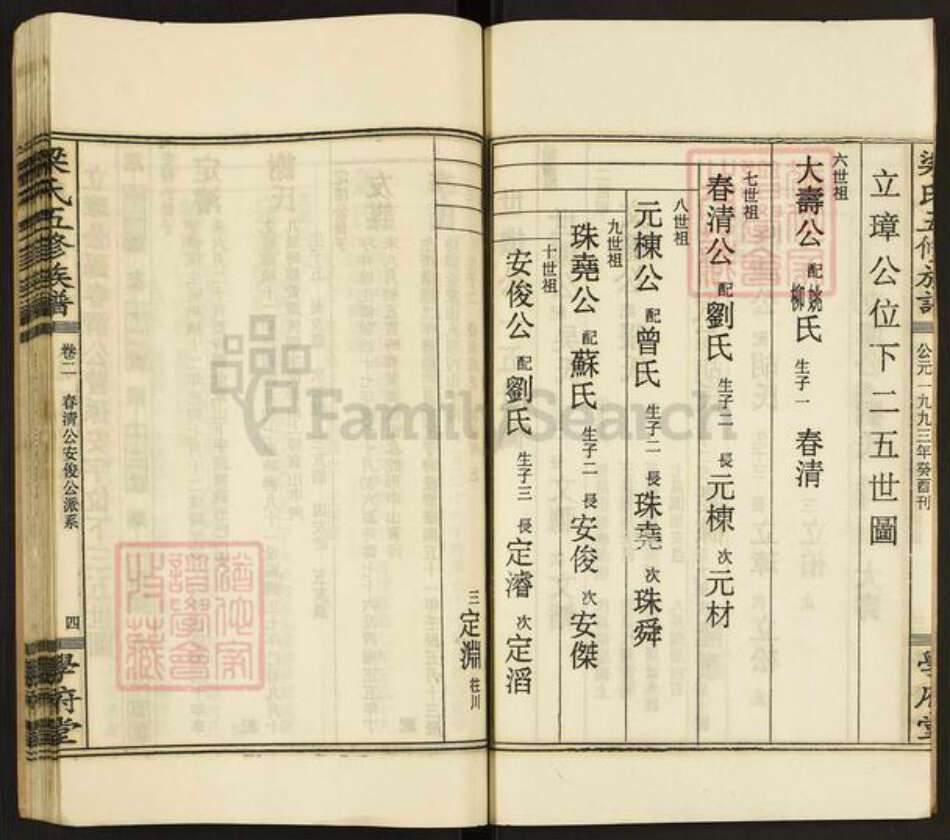 梁氏五修族譜
公元一九九三年癸酉刊
學府堂
立璋公位下二五世圖
六世祖
大壽公 配 姚柳氏 生子一 春清
七世祖
春清公 配 劉氏 生子二 長 元棟 次 元材
八世祖
元棟公 配 曾氏 生子二 長 珠堯 次 珠舜
九世祖
珠堯公 配 蘇氏 生子二 長 安俊 次 安傑
十世祖
安俊公 配 劉氏 生子三 長 定濬 次 定滔
三 定淵 往川
梁氏五修族譜
卷二 春清公安俊公派系
四
學府堂
FamilySearch